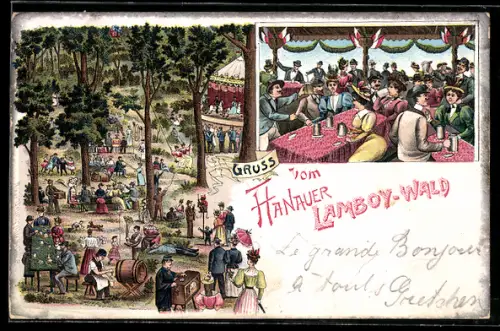 GRUSS
vom
HANAUER
LAMBOY-WALD
Le grand Bonjour
à touts
Gretchen